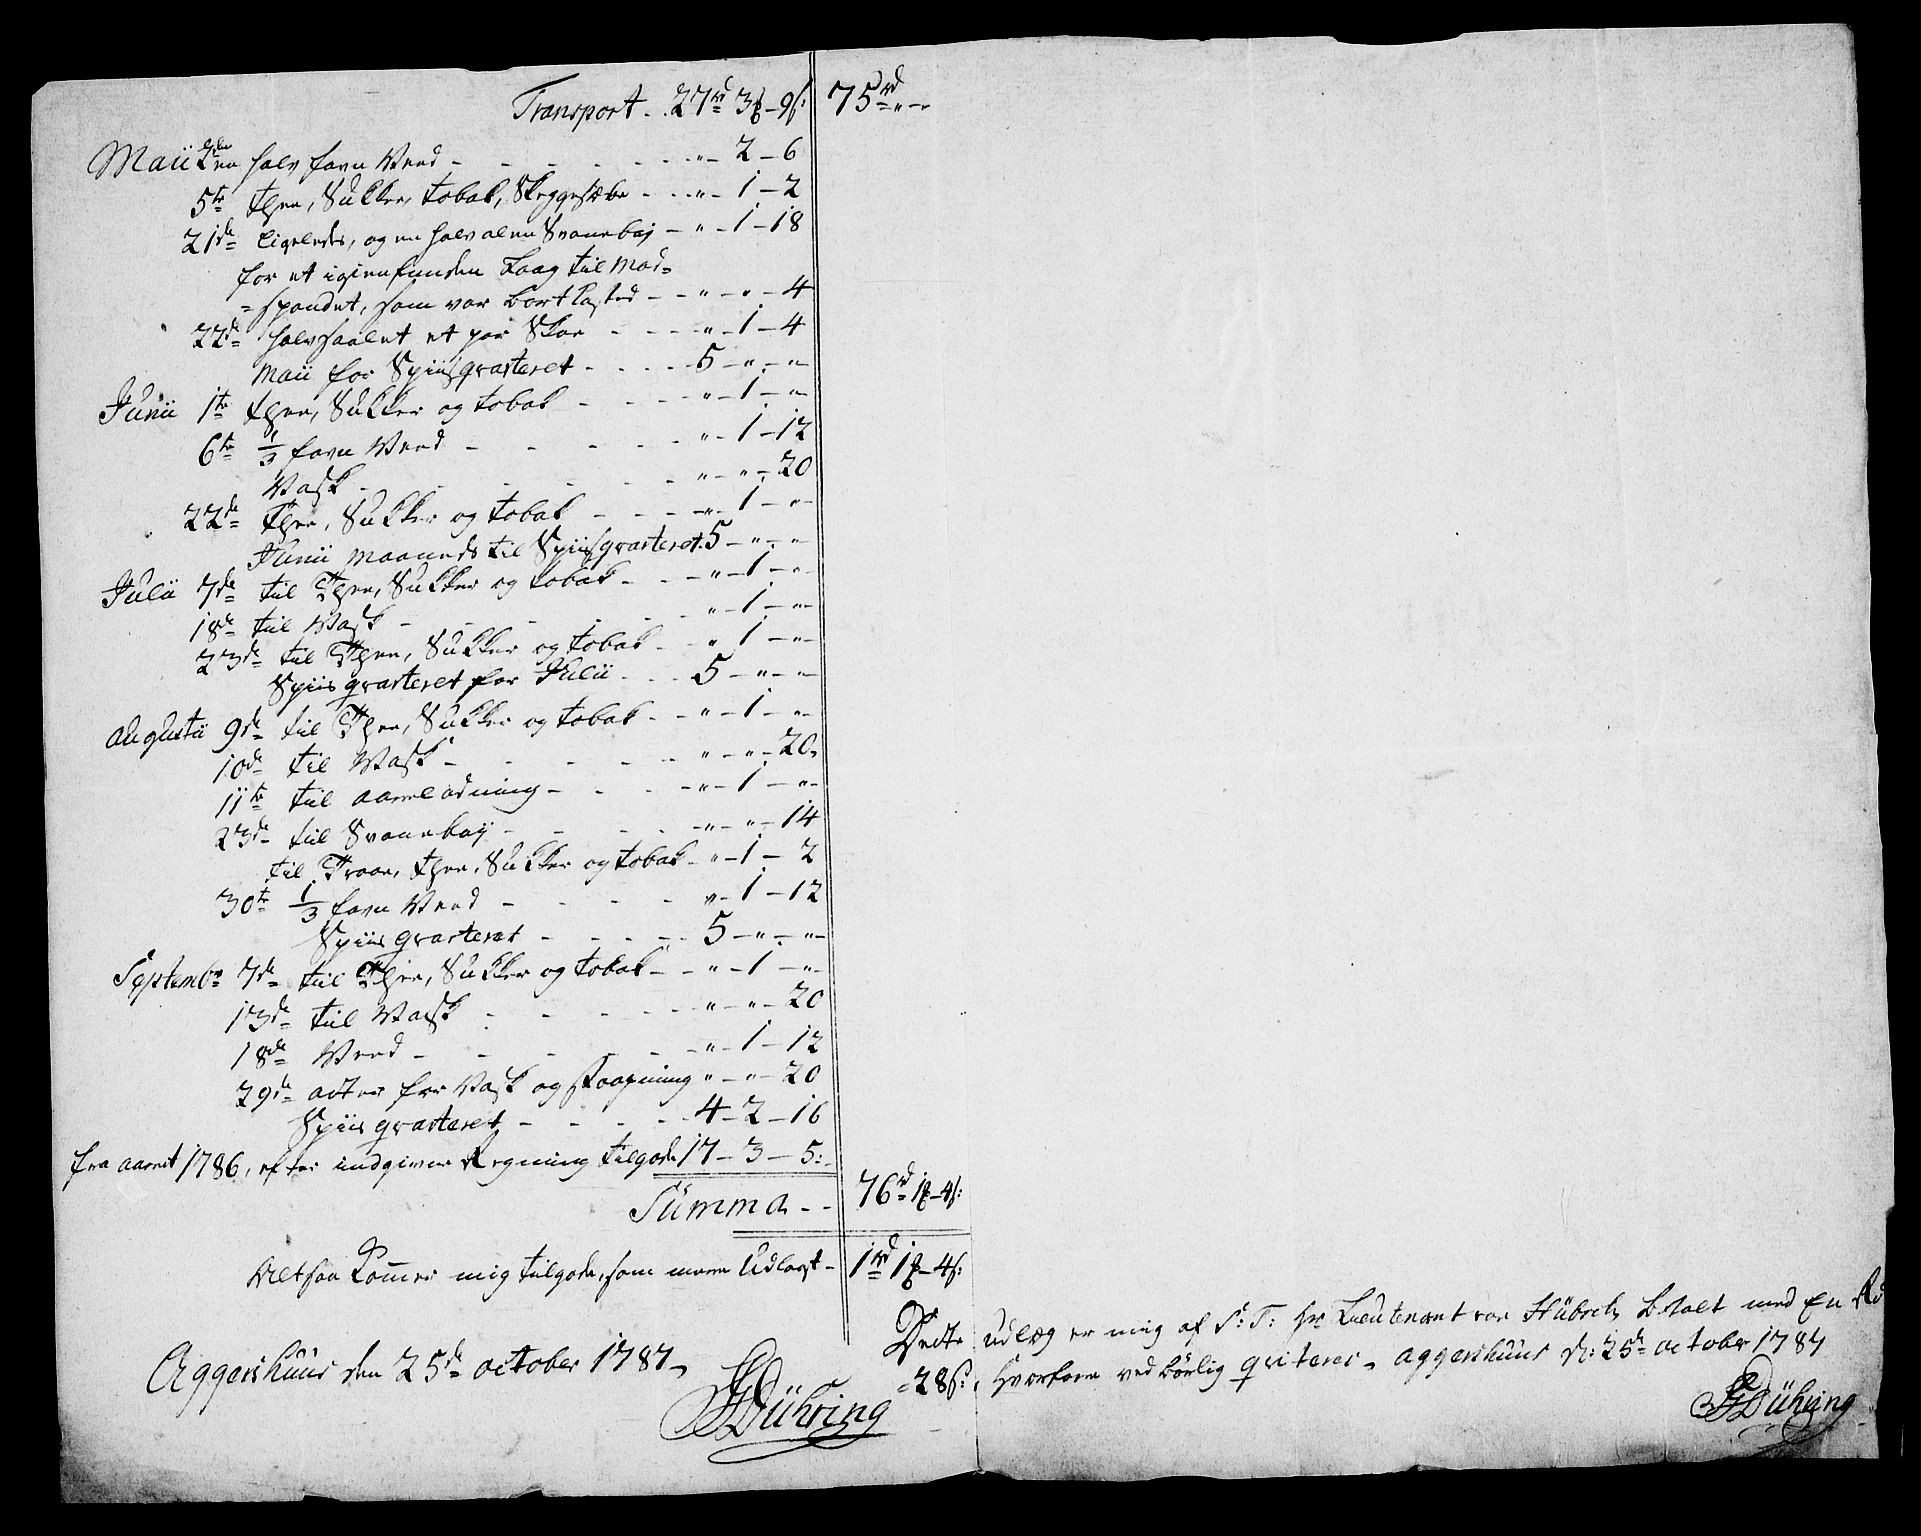 Transport . . 27rd 3ß – 9s: 75rd „ –
Maii 2den en halv favn Veed - - - - - „ – 2 – 6
5te Thee, Sukker, tobak, Skeggesæbe - - „ – 1 – 2
21de ligeledes, og en halv alen Svanebaj – „ – 1 – 18
for et igienfunden Laag til Mad=
=spandet, som var bortkasted – - „ – „ – 4
22de halvsaalet et par Skoe - - - „ – 1 – 4
Maii for Spiisqvarteret - - - 5 – „ – „
Junii 1te Thee, Sukker og tobak - - - „ – 1 – „
6te 1/3 favn Veed - - - - „ – 1 – 12
Vask - - - - - „ – „ – 20
22de Thee, Sukker og tobak - - - „ – 1 – „
Junii maaneds til Spiisqvarteret. 5 – „ – „
Julii 7de til Thee, Sukker og tobak - - „ – 1 – „
18de til Vask - - - - „ – 1 – „
23de til Thee, Sukker og tobak - „ 1 – „
Spiisqvarteret for Julii - - 5 – „ – „
Augustii 9de til Thee, Sukker og tobak - - „ – 1 – „
10de til Vask - - - - „ – „ – 20
11te til aareladning - - - „ – 1 – „
23de til Svanebaj - - - „ – „ – 14
til Traae, Thee, Sukker og tobak - „ – 1 – 2
30te 1/3 favn Veed - - - - „ – 1 – 12
Spiisqvarteret - - - 5 – „ – „
Septembr 7de til Thee, Sukker og tobak - - „ – 1 – „
13de til Vask - - - - „ – „ – 20
18de Veed - - - - „ – 1 – 12
29de atter for Vask og stoopning „ – „ – 20
Spiisqvarteret - - - 4 – 2 – 16
fra aaret 1786, efter indgiven Regning tilgode 17 – 3 – 5:
Summa - - 76rd 1ß – 4s:
Altsaa Kom̄er mig tilgode, som meere Udlagt – 1rd 1ß – 4s:
Aggershuus den 25de october 1787
Dühring
Dette udlæg er mig af S: T: Hr Lieutenant von Hübsch betalt med En Rd
= 28s:, hvorfore ved börlig qviteres. Aggershuus d: 25de october 1787
Dühring